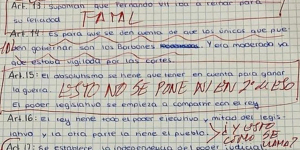 Art. 13 suponian que Fernando VII iba a reinar para
su felicidad TAML
Art. 14 Es para que se den cuenta de que los únicos que pue-
ben gobernar son los Borbones. Y era moderada ya
que estaba vigilada por las cortes.
Art. 15: El absolutismo se tiene que tener en cuenta para ganar
la guerra. ESTO NO SE PONE NI EN 2º de ESO
El poder legislativo se empieza a compartir con el rey.
Art. 16: El rey tiene todo el poder ejecutivo y mitad del legis-
lativo y la otra parte la tiene el pueblo. > ¿Y ESTO
CÓMO SE
LLAMA?
Art. 17: Se establece la independencia del poder judicial